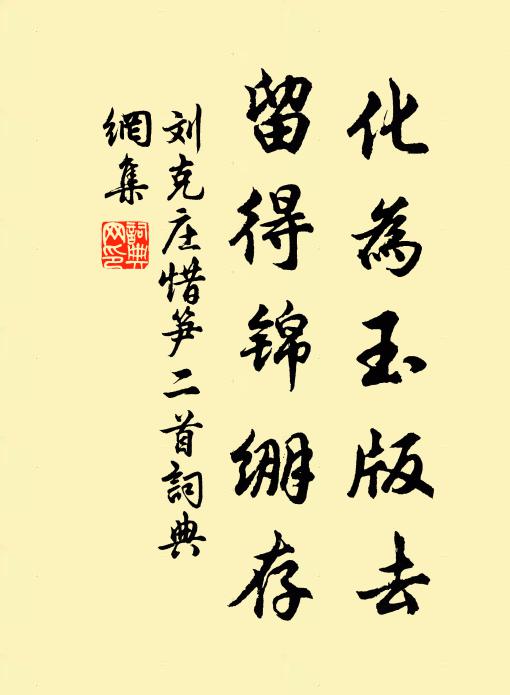 化為玉版去
留得锦绷存
刘克庄惜笋二首詞典
網集
詞典
网印